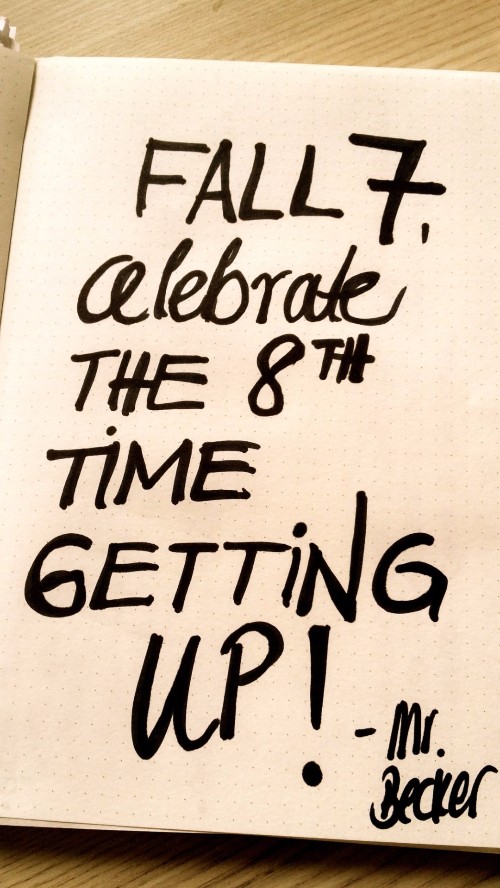 FALL 7,
celebrate
THE 8TH
TiME
GETTiNG
UP!
- Mr.
Becker